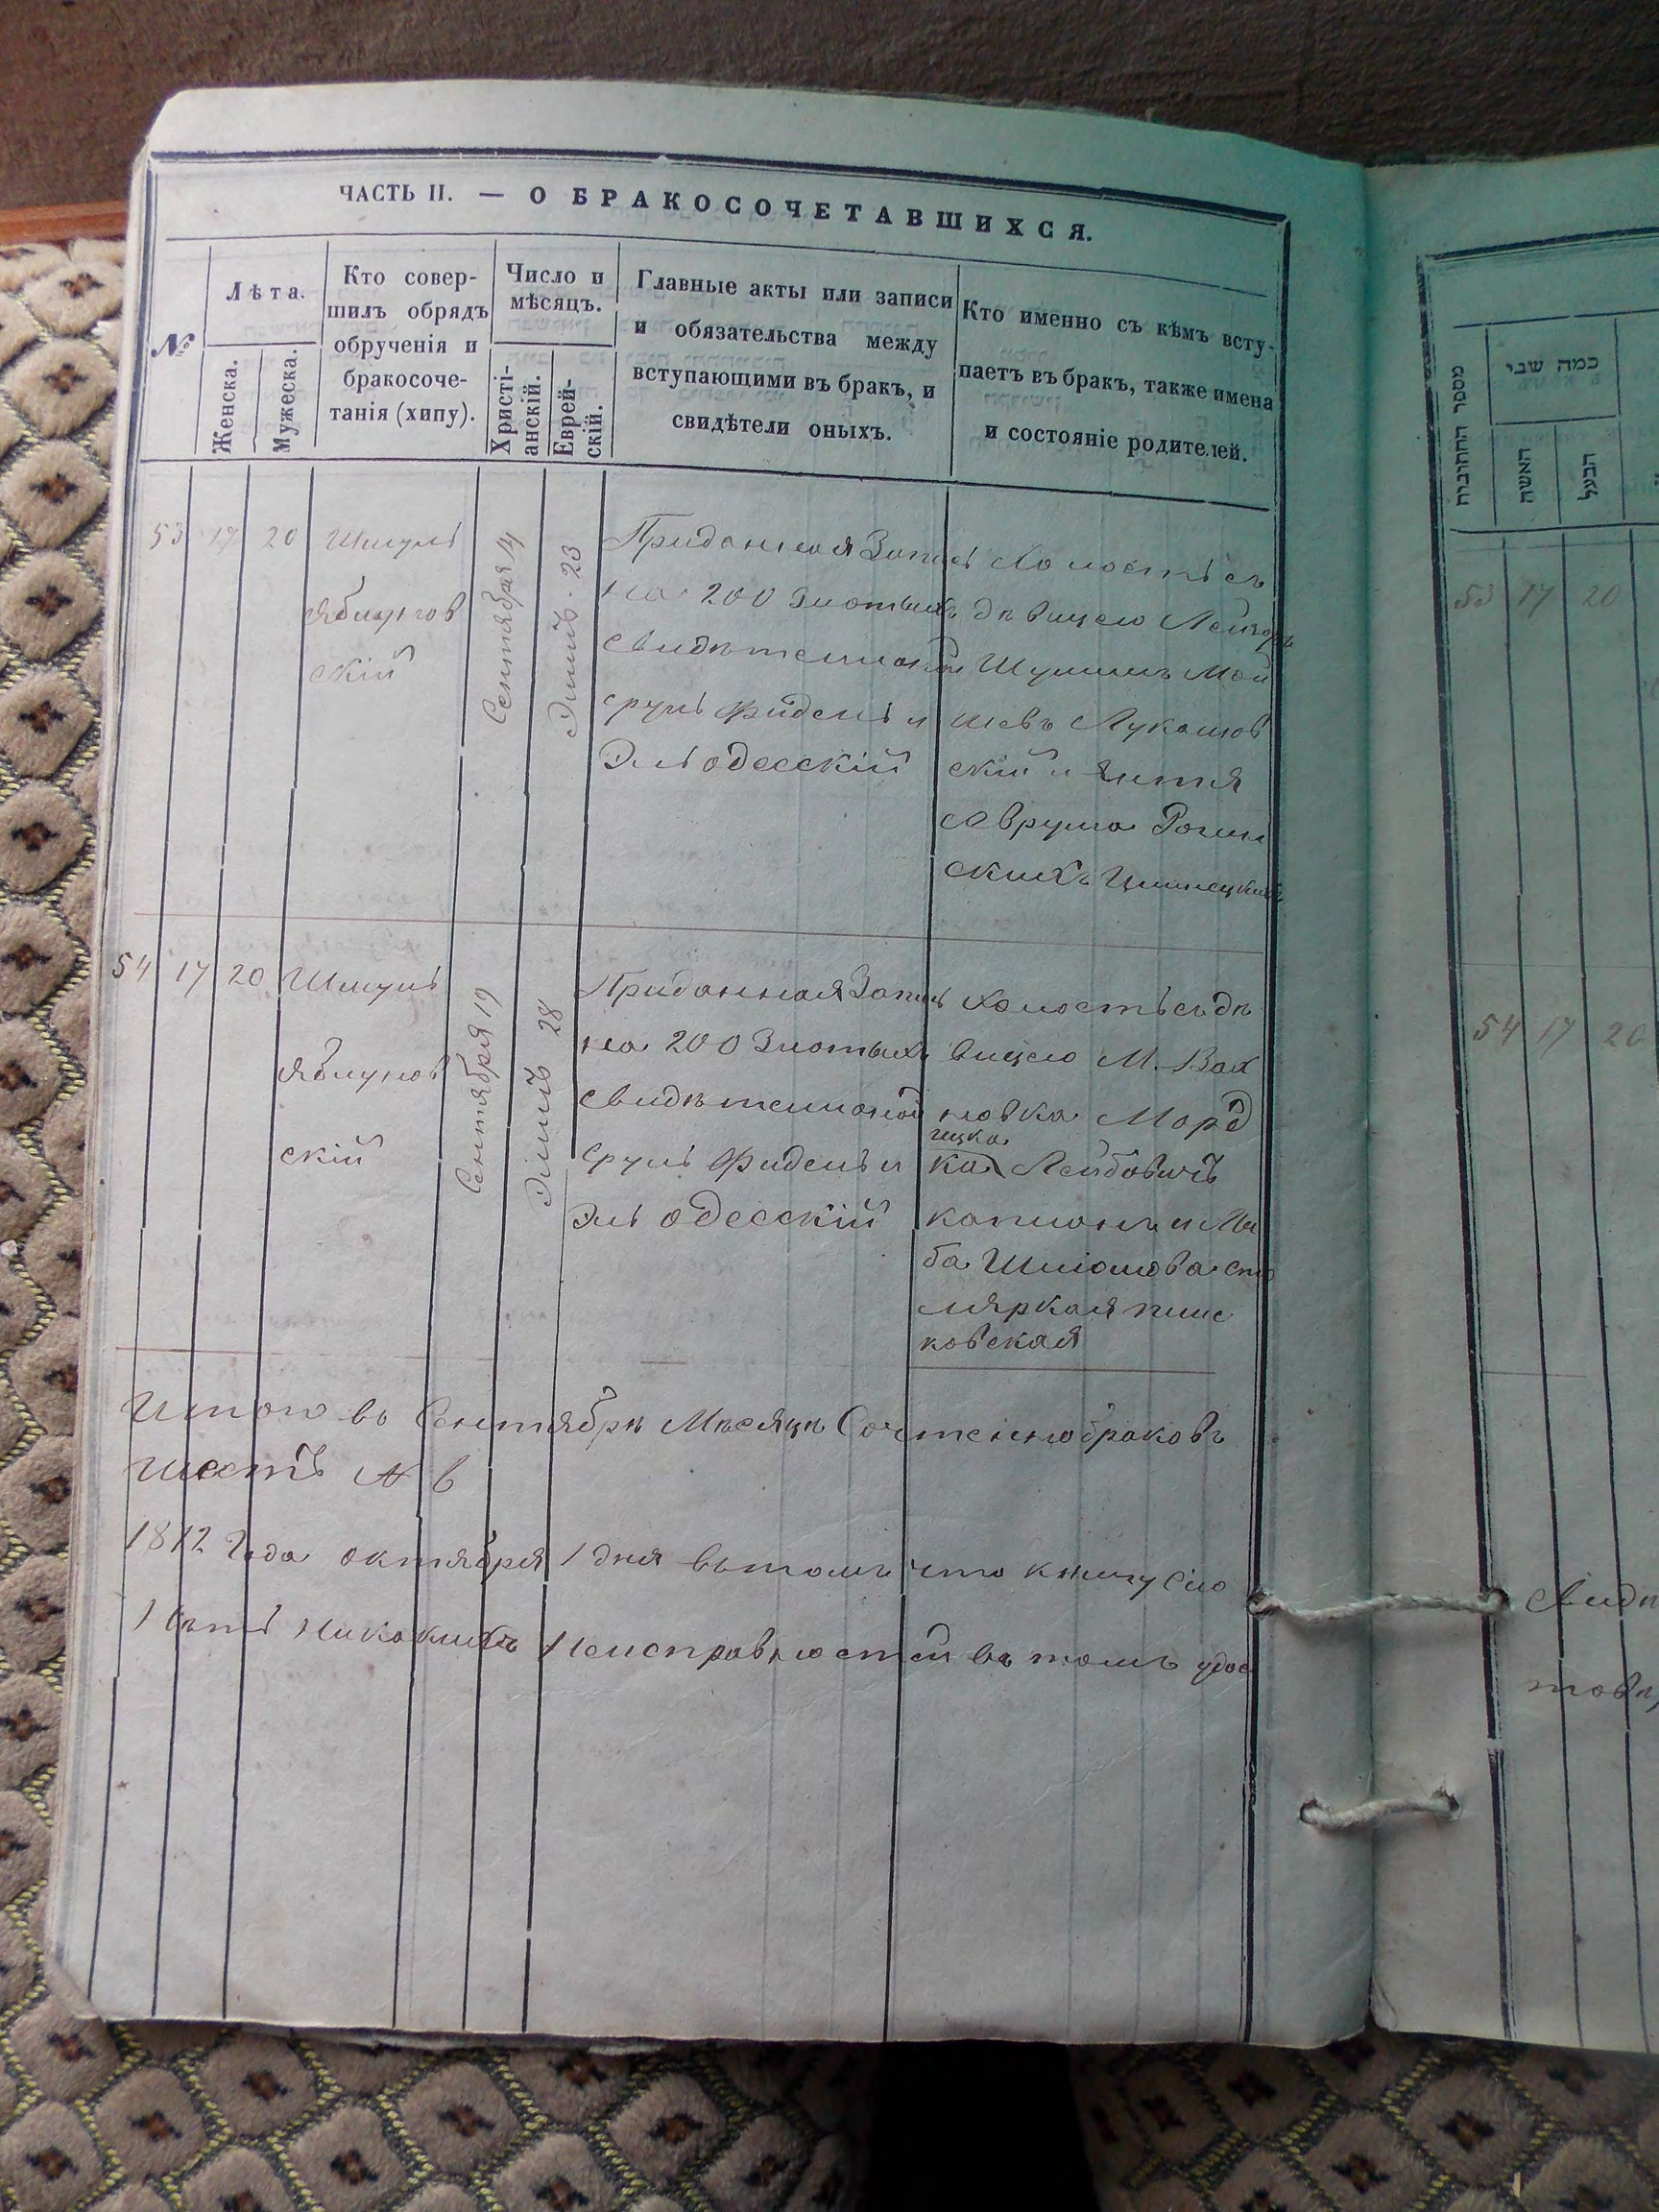 ЧАСТЬ II. — О БРАКОСОЧЕТАВШИХСЯ.
№
Лѣта.
Женска.
Мужеска.
Кто совер-
шилъ обрядъ
обрученія и
бракосоче-
танія (хипу).
Число и
мѣсяцъ.
Христі-
анскій.
Еврей-
скій.
Главные акты или записи
и обязательства между
вступающими въ бракъ, и
свидѣтели оныхъ.
Кто именно съ кѣмъ всту-
паетъ въ бракъ, также имена
и состояніе родителей.
53 17 20
Шмуль
Яблунов
скій
Сентября 14
Элиль 23
Приданная Запись
на 200 Злотыхъ
свидѣтели
Сруль Фидель и
Эль Одесскій
Холостъ съ
дѣвицею
Шулимъ Мой
шевъ Лукашов
скій и
Аврума
скихъ
54 17 20
Шмуль
Яблунов
скій
Сентября 19
Элиль 28
Приданная Запись
на 200 Злотыхъ
свидѣтели
Сруль Фидель и
Эль Одесскій
Холостъ съ дѣ
вицею М. Вах
новка Морд
ка Лейбовичъ
и
ба Шліомова
ковская
Итого въ Сентябрѣ Мѣсяцѣ Сочтенно браковъ
шесть № 6
года октября 1 дня въ томъ что книгу сію
никакихъ неисправностей въ томъ удос
מספר החתונות
כמה שני
האשה
הבעל
53 17 20
54 17 20